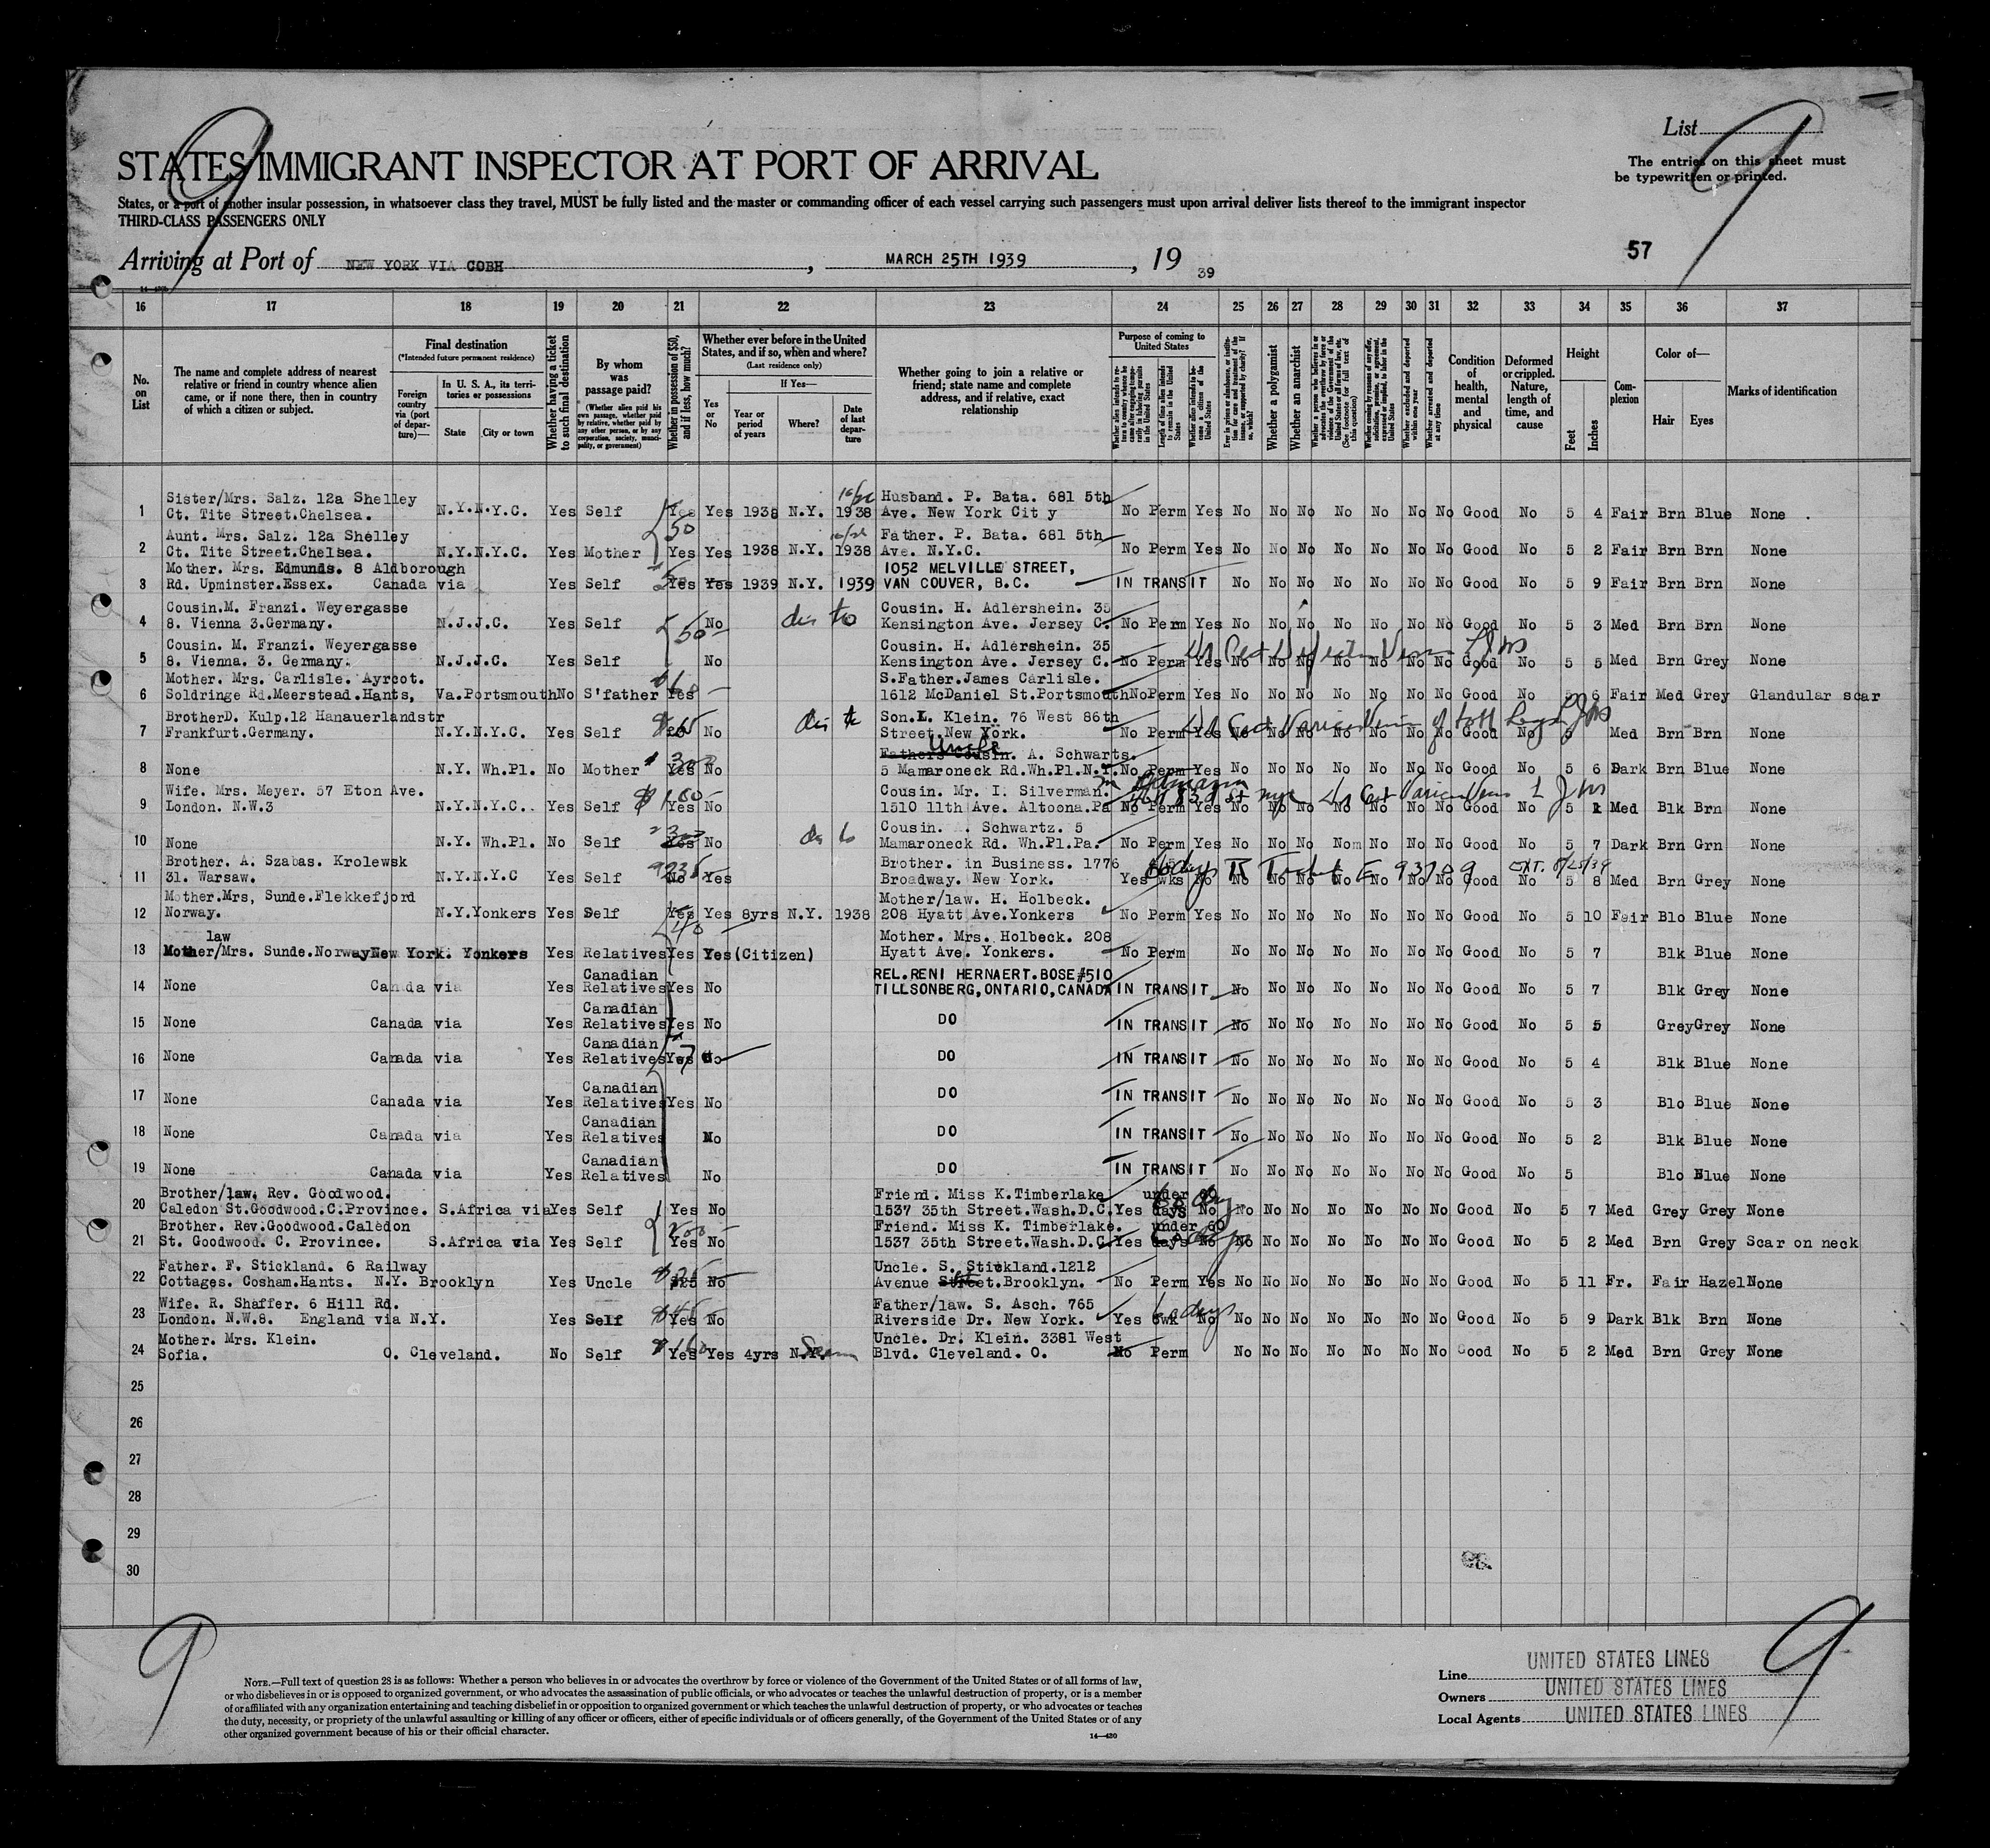 List
STATES IMMIGRANT INSPECTOR AT PORT OF ARRIVAL
The entries on this sheet must
be typewritten or printed.
States, or a port of another insular possession, in whatsoever class they travel, MUST be fully listed and the master or commanding officer of each vessel carrying such passengers must upon arrival deliver lists thereof to the immigrant inspector
THIRD-CLASS PASSENGERS ONLY
9 9
Arriving at Port of NEW YORK VIA COBH, MARCH 25TH 1939, 19 39
57
16 17 18 19 20 21 22 23 24 25 26 27 28 29 30 31 32 33 34 35 36 37
No. on List
The name and complete address of nearest relative or friend in country whence alien came, or if none there, then in country of which a citizen or subject.
Final destination
(*Intended future permanent residence)
Foreign country via (port of departure)—
In U. S. A., its territories or possessions
State City or town
Whether having a ticket to such final destination
By whom was passage paid?
(Whether alien paid his own passage, whether paid by relative, whether paid by any other person, or by any corporation, society, municipality, or government)
Whether in possession of $50, and if less, how much?
Whether ever before in the United States, and if so, when and where?
(Last residence only)
Yes or No
If Yes—
Year or period of years Where? Date of last departure
Whether going to join a relative or friend; state name and complete address, and if relative, exact relationship
Purpose of coming to United States
Whether alien intends to return to country whence he came after engaging temporarily in laboring pursuits in the United States
Length of time alien intends to remain in the United States
Whether alien intends to become a citizen of the United States
Ever in prison or almshouse, or institution for care and treatment of the insane, or supported by charity? If so, which?
Whether a polygamist
Whether an anarchist
Whether a person who believes in or advocates the overthrow by force or violence of the Government of the United States or all forms of law, etc. (See footnote for full text of this question)
Whether coming by reasons of any offer, solicitation, promise, or agreement, expressed or implied, to labor in the United States
Whether excluded and deported within one year
Whether arrested and deported at any time
Condition of health, mental and physical
Deformed or crippled. Nature, length of time, and cause
Height
Feet Inches
Complexion
Color of—
Hair Eyes
Marks of identification
Sister/Mrs. Salz. 12a Shelley 10/22 Husband. P. Bata. 681 5th
1 Ct. Tite Street.Chelsea. N.Y.N.Y.C. Yes Self Yes Yes 1938 N.Y. 1938 Ave. New York City No Perm Yes No No No No No No No Good No 5 4 Fair Brn Blue None
50
Aunt. Mrs. Salz. 12a Shelley Father. P. Bata. 681 5th
2 Ct. Tite Street.Chelsea. N.Y.N.Y.C. Yes Mother Yes Yes 1938 N.Y. 1938 Ave. N.Y.C. No Perm Yes No No No No No No No Good No 5 2 Fair Brn Brn None
Mother. Mrs. Edmunds. 8 Aldborough 1052 MELVILLE STREET,
3 Rd. Upminster.Essex. Canada via Yes Self Yes Yes 1939 N.Y. 1939 VAN COUVER, B.C. IN TRANSIT No No No No No No No Good No 5 9 Fair Brn Brn None
Cousin.M. Franzi. Weyergasse Cousin. H. Adlershein. 35
4 8. Vienna 3.Germany. N.J.J.C. Yes Self 50 No Kensington Ave. Jersey C. No Perm Yes No No No No No No No Good No 5 3 Med Brn Brn None
Cousin. M. Franzi. Weyergasse Cousin. H. Adlershein. 35
5 8. Vienna. 3. Germany. N.J.J.C. Yes Self No Kensington Ave. Jersey C. No Perm Yes No No No No No No No Good No 5 5 Med Brn Grey None
Mother. Mrs. Carlisle. Ayrcot. S.Father.James Carlisle.
6 Soldringe Rd.Meerstead.Hants, Va.Portsmouth No S'father Yes 1612 McDaniel St.Portsmouth No Perm Yes No No No No No No No Good No 5 6 Fair Med Grey Glandular scar
BrotherD. Kulp.12 Hanauerlandstr Son.L. Klein. 76 West 86th
7 Frankfurt.Germany. N.Y.N.Y.C. Yes Self $65 No Street.New York. No Perm Yes No No No No No No No Good No 5 Med Brn Brn None
Uncle
Fathers Cousin. A. Schwarts.
8 None N.Y. Wh.Pl. No Mother Yes No 5 Mamaroneck Rd.Wh.Pl.N.Y. No Perm Yes No No No No No No No Good No 5 6 Dark Brn Blue None
Wife. Mrs. Meyer. 57 Eton Ave. $100 Cousin. Mr. I. Silverman.
9 London. N.W.3 N.Y.N.Y.C. Yes Self Yes No 1510 11th Ave. Altoona.Pa No Perm Yes No No No No No No No Good No 5 1 Med Blk Brn None
Cousin. Schwartz. 5
10 None N.Y. Wh.Pl. No Self Yes No Mamaroneck Rd. Wh.Pl.Pa. No Perm Yes No No No Nom No No No Good No 5 7 Dark Brn Grn None
Brother. A. Szabas. Krolewsk Brother. in Business. 1776
11 31. Warsaw. N.Y.N.Y.C Yes Self No Yes Broadway. New York. Yes wks No No No No No No No No Good No 5 8 Med Brn Grey None
Mother.Mrs, Sunde.Flekkefjord Mother/law. H. Holbeck.
12 Norway. N.Y.Yonkers Yes Self Yes Yes 8yrs N.Y. 1938 208 Hyatt Ave.Yonkers No Perm Yes No No No No No No No Good No 5 10 Fair Blo Blue None
40
law Mother. Mrs. Holbeck. 208
13 Mother/Mrs. Sunde.Norway New York. Yonkers Yes Relatives Yes Yes (Citizen) Hyatt Ave. Yonkers. No Perm No No No No No No No Good No 5 7 Blk Blue None
Canadian REL.RENI HERNAERT.BOSE#510
14 None Canada via Yes Relatives Yes No TILLSONBERG,ONTARIO,CANADA IN TRANSIT No No No No No No No Good No 5 7 Blk Grey None
Canadian
15 None Canada via Yes Relatives Yes No DO IN TRANSIT No No No No No No No Good No 5 5 Grey Grey None
Canadian
16 None Canada via Yes Relatives Yes No DO IN TRANSIT No No No No No No No Good No 5 4 Blk Blue None
Canadian
17 None Canada via Yes Relatives Yes No DO IN TRANSIT No No No No No No No Good No 5 3 Blo Blue None
Canadian
18 None Canada via Yes Relatives No DO IN TRANSIT No No No No No No No Good No 5 2 Blk Blue None
Canadian
19 None Canada via Yes Relatives No DO IN TRANSIT No No No No No No No Good No 5 Blo Blue None
Brother/law. Rev. Goodwood. Friend. Miss K.Timberlake under 60
20 Caledon St.Goodwood.C.Province. S.Africa via Yes Self Yes No 1537 35th Street.Wash.D.C. Yes days No No No No No No No No Good No 5 7 Med Grey Grey None
Brother. Rev.Goodwood.Caledon Friend. Miss K. Timberlake. under 60
21 St. Goodwood. C. Province. S.Africa via Yes Self Yes No 1537 35th Street.Wash.D.C. Yes days No No No No No No No No Good No 5 2 Med Brn Grey Scar on neck
Father. F. Stickland. 6 Railway Uncle. S. Stickland.1212
22 Cottages. Cosham.Hants. N.Y. Brooklyn Yes Uncle No Avenue Street.Brooklyn. No Perm Yes No No No No No No No Good No 5 11 Fr. Fair Hazel None
Wife. R. Shaffer. 6 Hill Rd. Father/law. S. Asch. 765
23 London. N.W.8. England via N.Y. Yes Self $45 Yes No Riverside Dr. New York. Yes 6wk 60 days No No No No No No No No Good No 5 9 Dark Blk Brn None
Mother. Mrs. Klein. Uncle. Dr. Klein. 3381 West
24 Sofia. O. Cleveland. No Self Yes Yes 4yrs N.Y. Blvd. Cleveland. O. No Perm No No No No No No No Good No 5 2 Med Brn Grey None
25
26
27
28
29
30
9 9
NOTE.—Full text of question 28 is as follows: Whether a person who believes in or advocates the overthrow by force or violence of the Government of the United States or of all forms of law,
or who disbelieves in or is opposed to organized government, or who advocates the assassination of public officials, or who advocates or teaches the unlawful destruction of property, or is a member
of or affiliated with any organization entertaining and teaching disbelief in or opposition to organized government or which teaches the unlawful destruction of property, or who advocates or teaches
the duty, necessity, or propriety of the unlawful assaulting or killing of any officer or officers, either of specific individuals or of officers generally, of the Government of the United States or of any
other organized government because of his or their official character.
14—430
Line UNITED STATES LINES
Owners UNITED STATES LINES
Local Agents UNITED STATES LINES